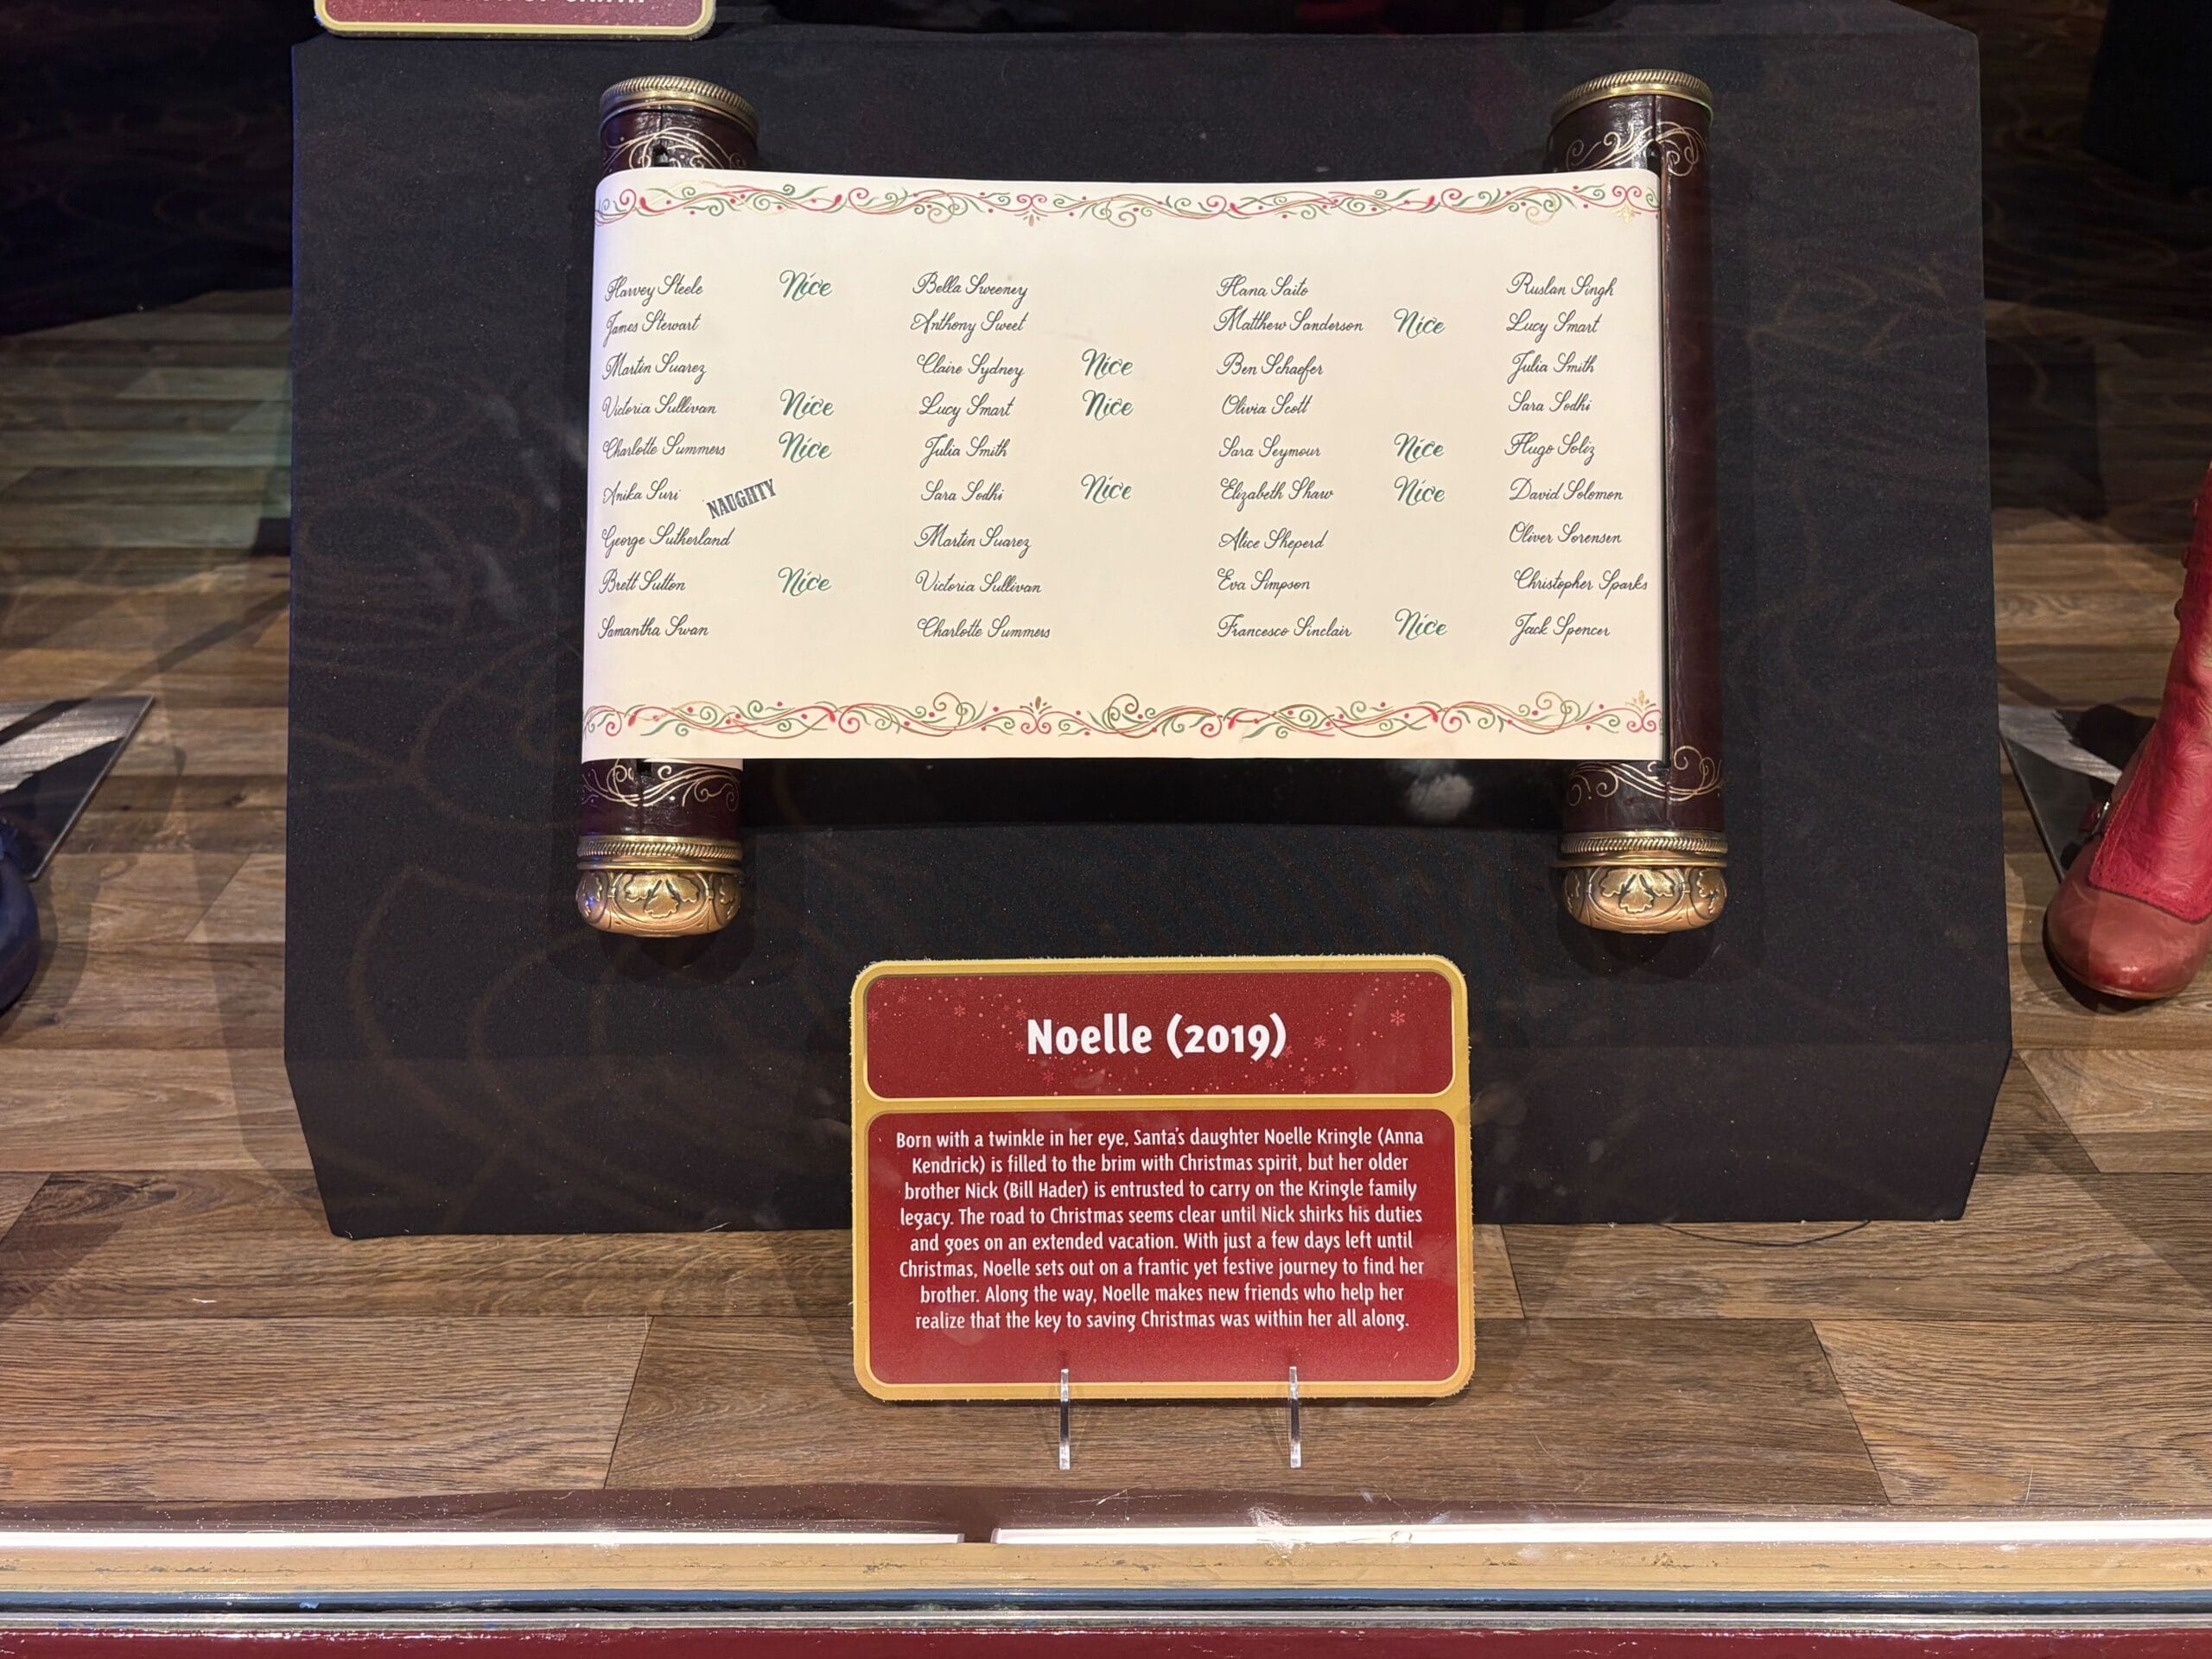 Harvey Steele Nice Bella Sweeney Hana Saito Ruslan Singh
James Stewart Anthony Sweet Matthew Sanderson Nice Lucy Smart
Martin Suarez Claire Sydney Nice Ben Schaefer Julia Smith
Victoria Sullivan Nice Lucy Smart Nice Olivia Scott Sara Sodhi
Charlotte Summers Nice Julia Smith Sara Seymour Nice Hugo Soliz
Anika Suri NAUGHTY Sara Sodhi Nice Elizabeth Shaw Nice David Solomon
George Sutherland Martin Suarez Alice Sheperd Oliver Sorensen
Brett Sutton Nice Victoria Sullivan Eva Simpson Christopher Sparks
Samantha Swan Charlotte Summers Francesco Sinclair Nice Jack Spencer
Noelle (2019)
Born with a twinkle in her eye, Santa's daughter Noelle Kringle (Anna
Kendrick) is filled to the brim with Christmas spirit, but her older
brother Nick (Bill Hader) is entrusted to carry on the Kringle family
legacy. The road to Christmas seems clear until Nick shirks his duties
and goes on an extended vacation. With just a few days left until
Christmas, Noelle sets out on a frantic yet festive journey to find her
brother. Along the way, Noelle makes new friends who help her
realize that the key to saving Christmas was within her all along.